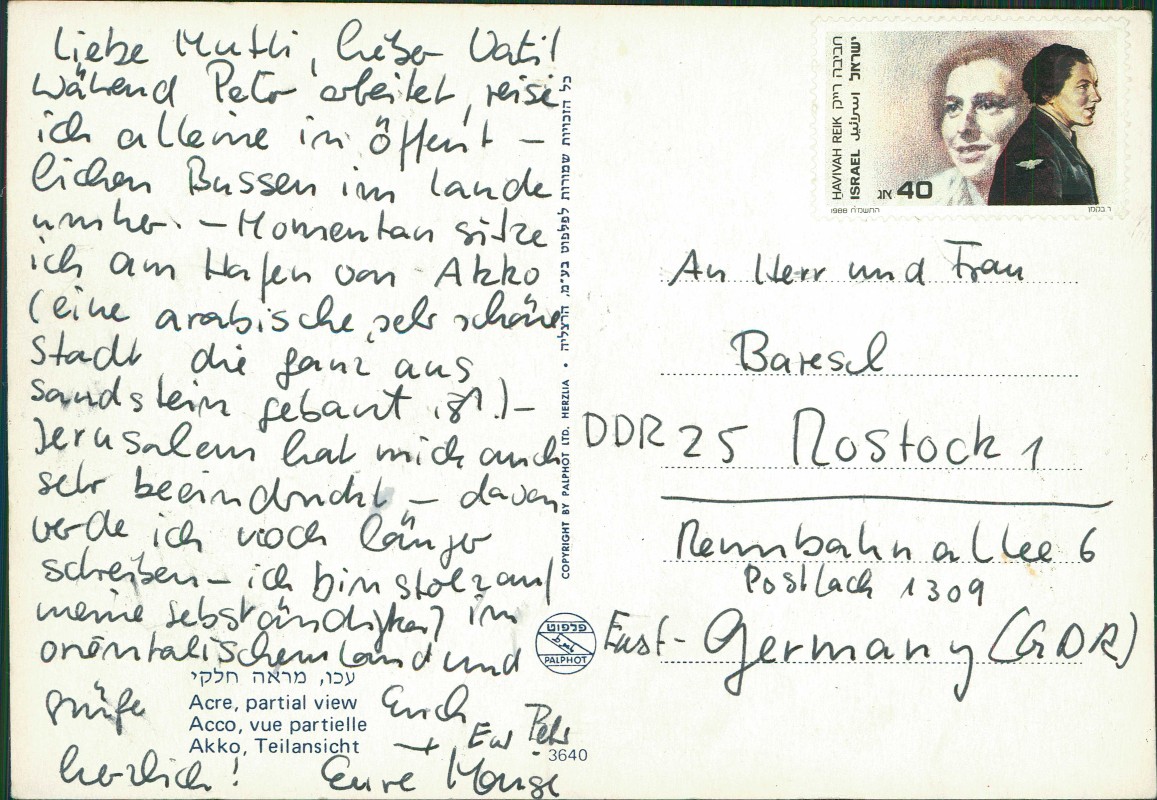 Liebe Mutti, lieber Vati!
Während Peter arbeitet, reise
ich alleine in öffent-
lichen Bussen im Lande
umher. – Momentan sitze
ich am Hafen von Akko
(eine arabische, sehr schöne
Stadt die ganz aus
Sandstein gebaut ist.) –
Jerusalem hat mich auch
sehr beeindruckt – davon
werde ich noch länger
schreiben – ich bin stolz auf
meine Selbständigkeit im
orientalischen Land und
grüße Euch
herzlich! Eure
+ Peter
עכו, מראה חלקי
Acre, partial view
Acco, vue partielle
Akko, Teilansicht
3640
כל הזכויות שמורות לפלפוט בע"מ, הרצליה • COPYRIGHT BY PALPHOT LTD. HERZLIA
פלפוט
PALPHOT
חביבה רייק HAVIVAH REIK
ישראל اسرائيل ISRAEL
אג 40
1988 התשמ"ח
ר. בקמן
An Herr und Frau
Baresel
DDR 25 Rostock 1
Rennbahnallee 6
Postfach 1309
East-Germany (GDR)